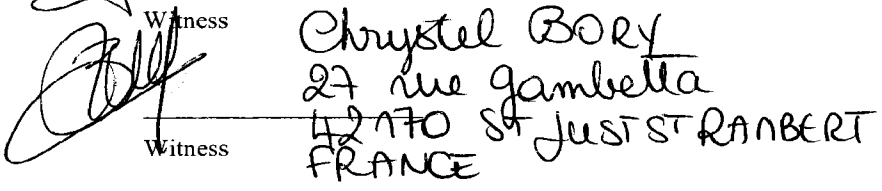 Witness
Chrystel BORY
27 rue gambetta
42170 ST JUST ST RAMBERT
Witness
FRANCE